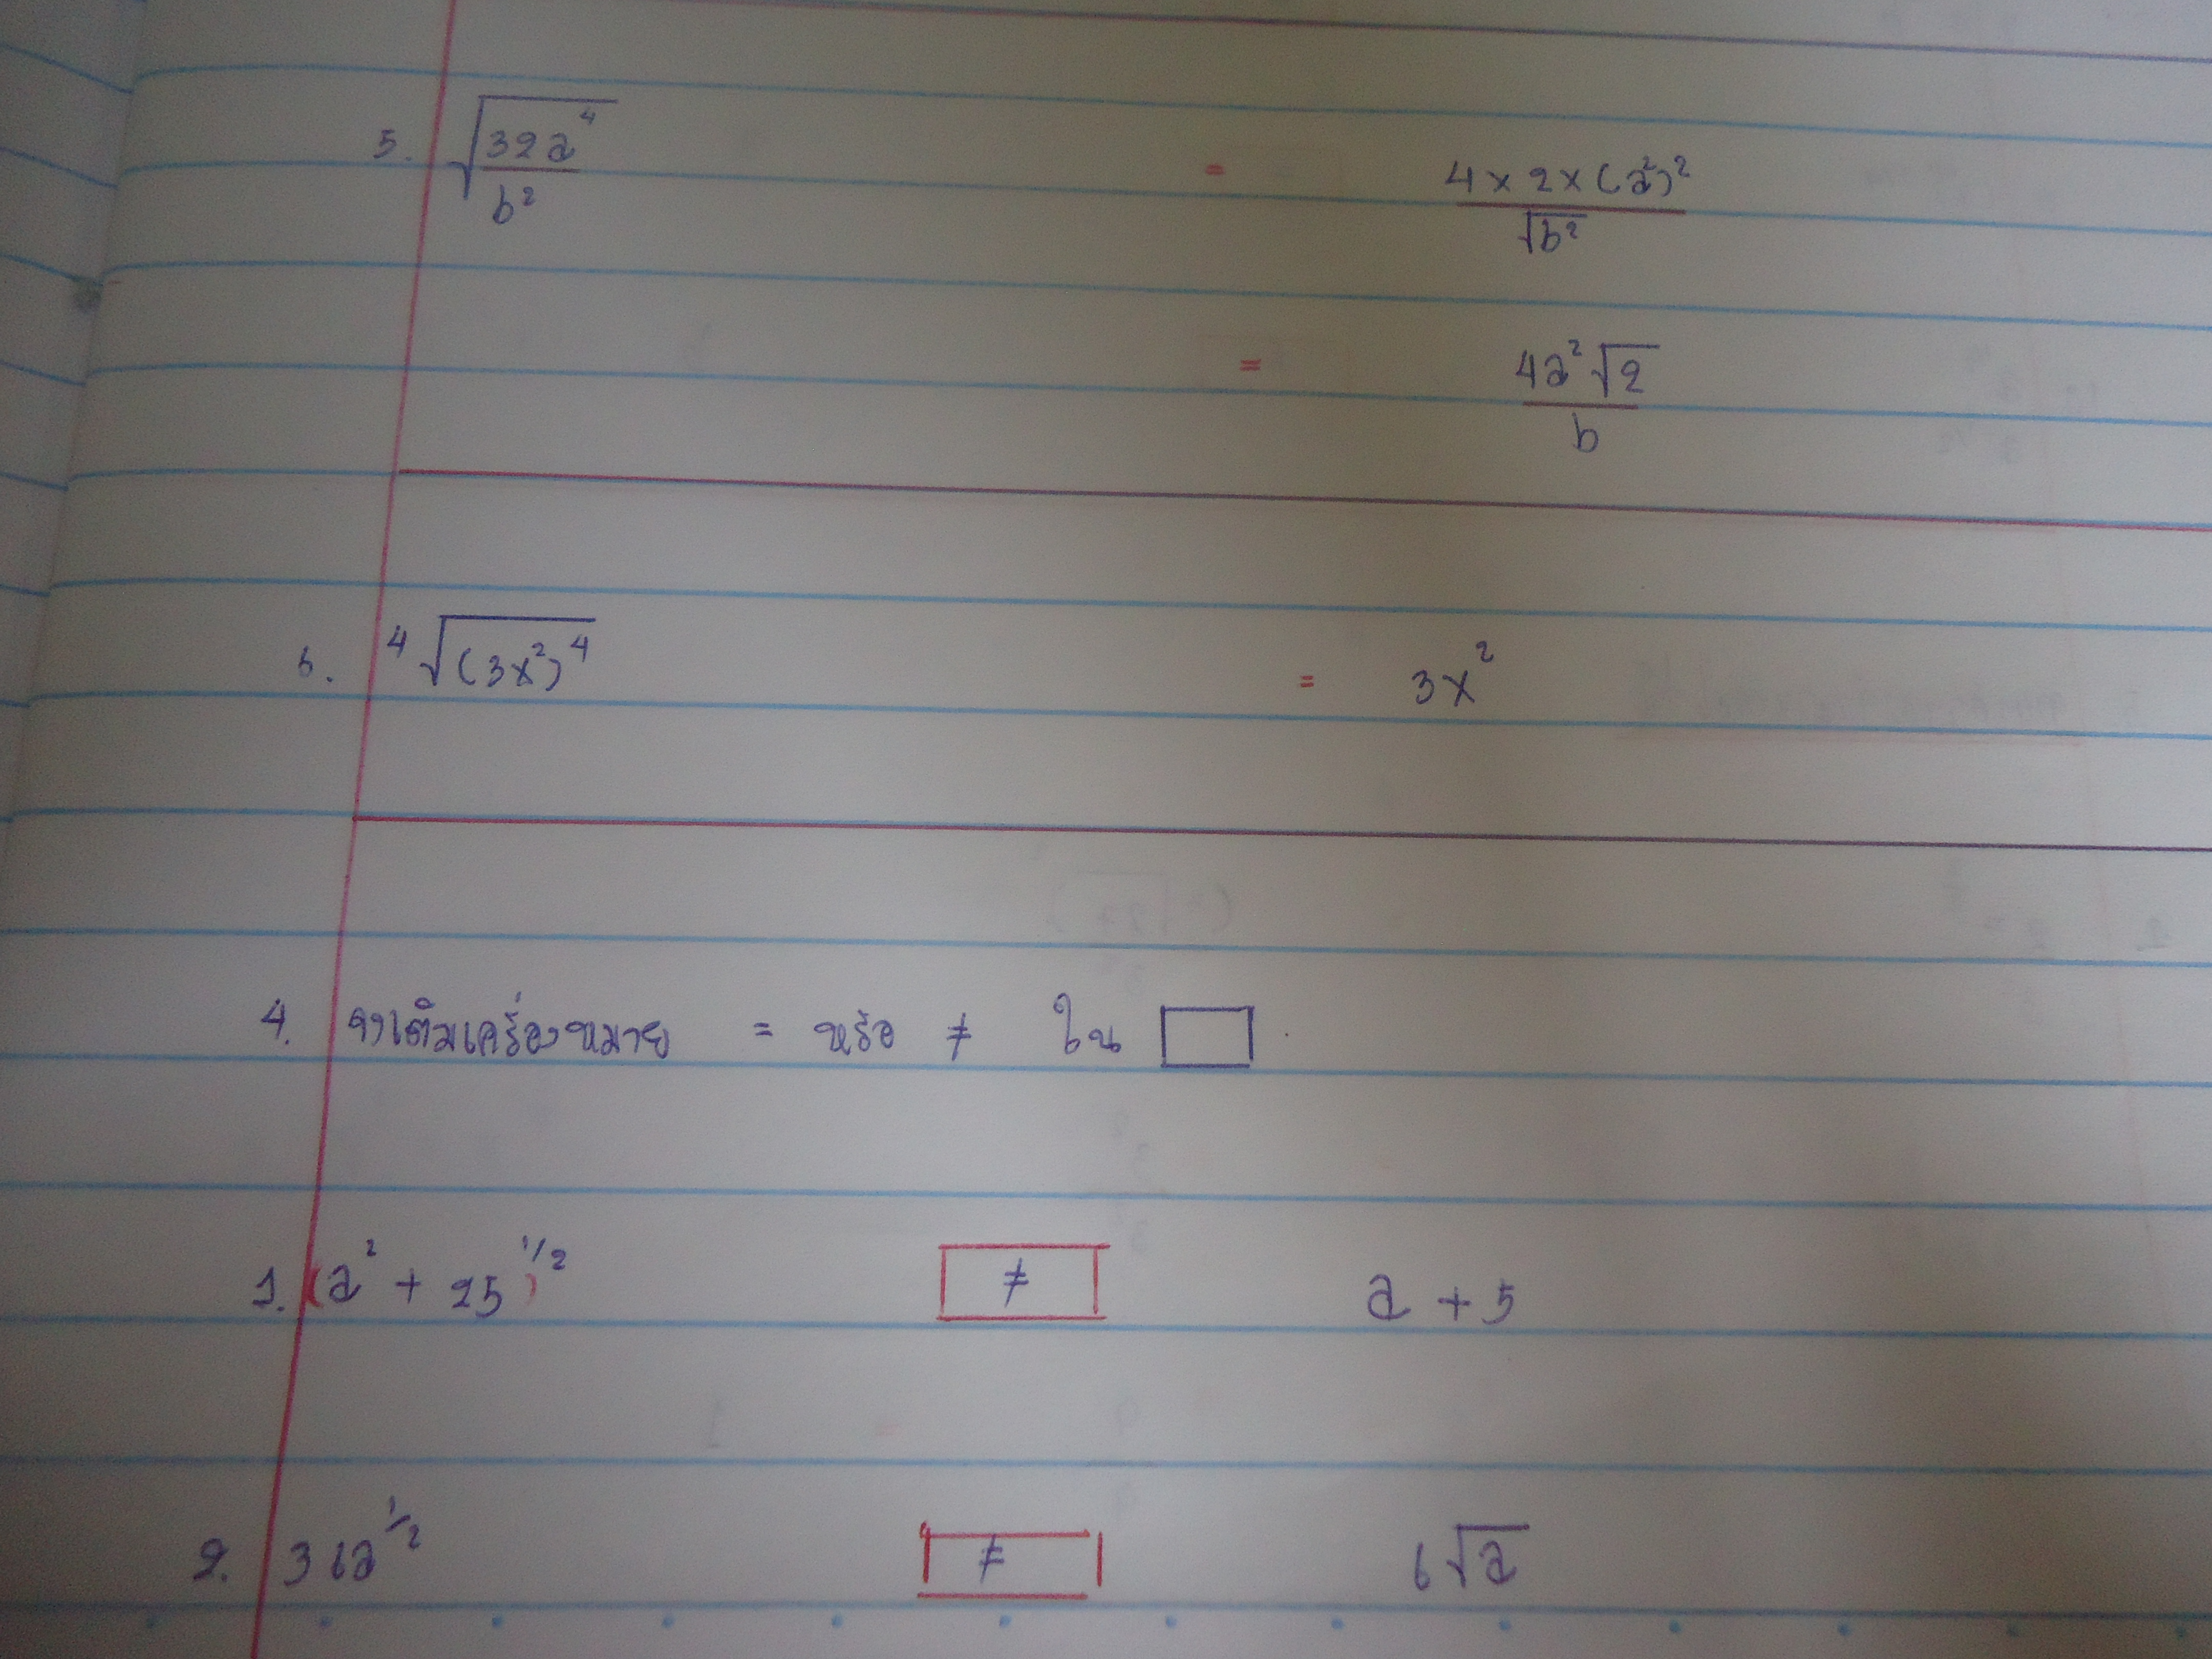 5. √(32a⁴/b²) = 4 × 2 × (a²)² / √b²
= 4a²√2 / b
6. ⁴√(3x²)⁴ = 3x²
4. จงเติมเครื่องหมาย = หรือ ≠ ใน □
1. (a² + 25)^1/2 ≠ a + 5
2. 36a^1/2 ≠ 6√a